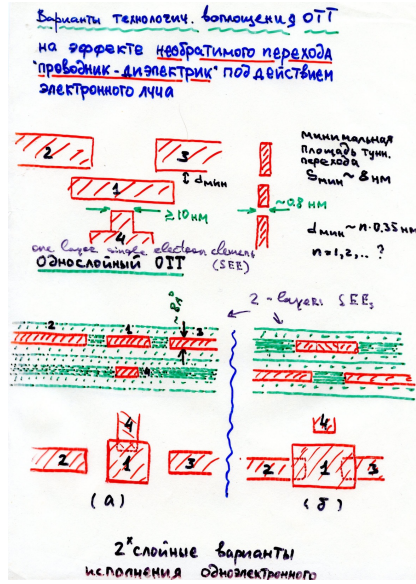 Варианты технологич. воплощения ОТТ
на эффекте необратимого перехода
"проводник-диэлектрик" под действием
электронного луча
минимальная
площадь тунн.
перехода
Sмин ~ 8 нм
2
3
dмин
1
≥10 нм
~0.8 нм
dмин ~ n·0.35 нм
n=1,2,... ?
4
one layer single electron element
(SEE)
Однослойный ОТТ
2-layers SEEs
2
1
3
4
4
2
1
3
4
2
1
3
(а)
(б)
2х слойные варианты
исполнения одноэлектронного